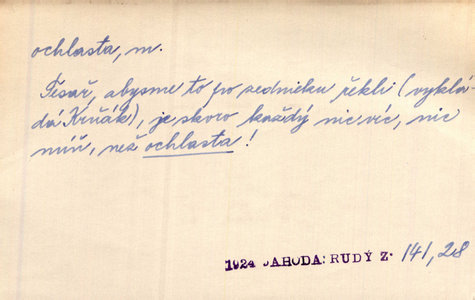 ochlasta, m.
Tesař, abysme to po sednicku řekli (vyklá-
dá Krňák), je skoro každý nic víc, nic
míň, než ochlasta!
1924 JAHODA: RUDÝ Z. 141, 28